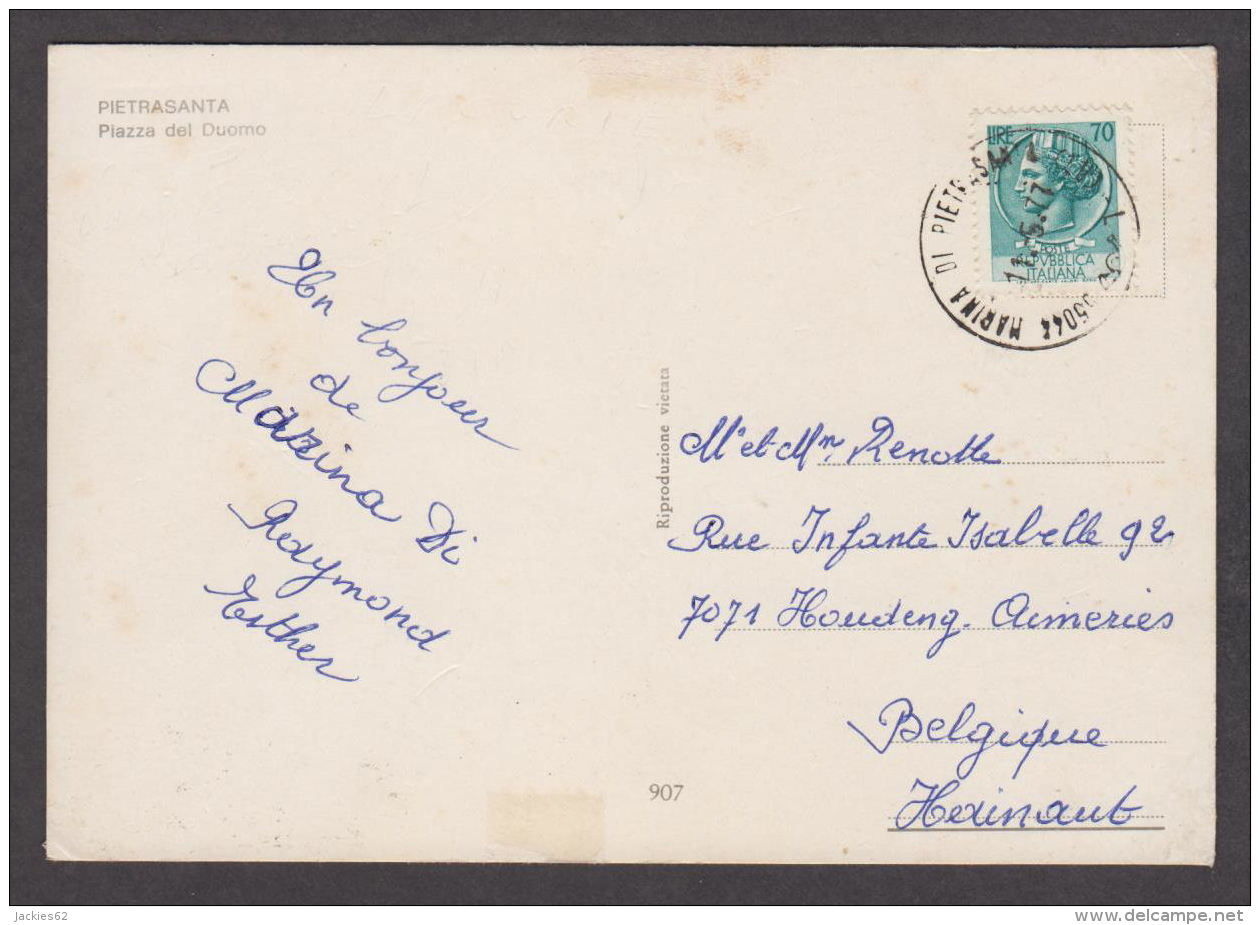 PIETRASANTA
Piazza del Duomo
LIRE 70
POSTE
REPVBBLICA
ITALIANA
55044 MARINA DI PIETRASAN
.5.77
Un bonjour
de
Marina Di
Raymond
Esther
Riproduzione vietata
Mr et Mme Renotte
Rue Infante Isabelle 92
7071 Houdeng-Aimeries
Belgique
Hainaut
907
jackies62
delcampe.net